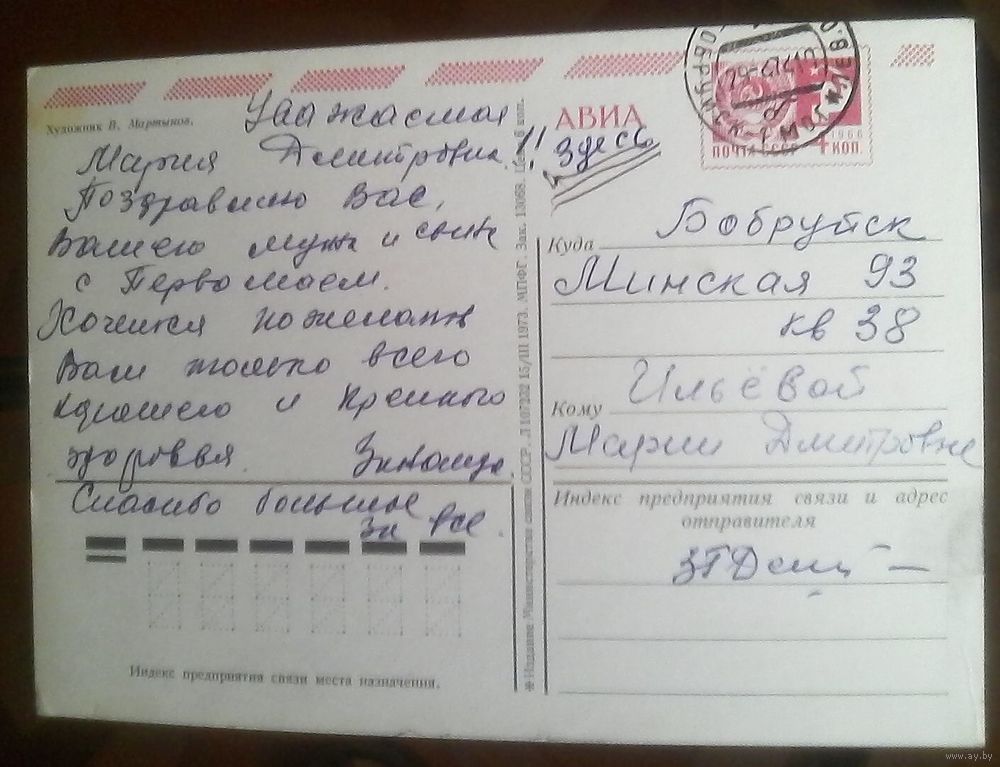 Художник В. Мартынов.
Уважаемая
Мария Дмитровна!!
Поздравляю Вас,
Вашего мужа и сына
с Первомаем.
Хочется пожелать
Вам только всего
хорошего и крепкого
здоровья. Зинаида
Спасибо большое
за все.
Индекс предприятия связи места назначения.
Издание Министерства связи СССР. 15/III 1973. МПФГ. Зак. 13068. Цена 6 коп.
АВИА
Здесь
1966
ПОЧТА СССР 4 КОП.
Куда Бобруйск
Минская 93
кв 38
Кому Ильёвой
Марии Дмитровне
Индекс предприятия связи и адрес
отправителя
www.ay.by